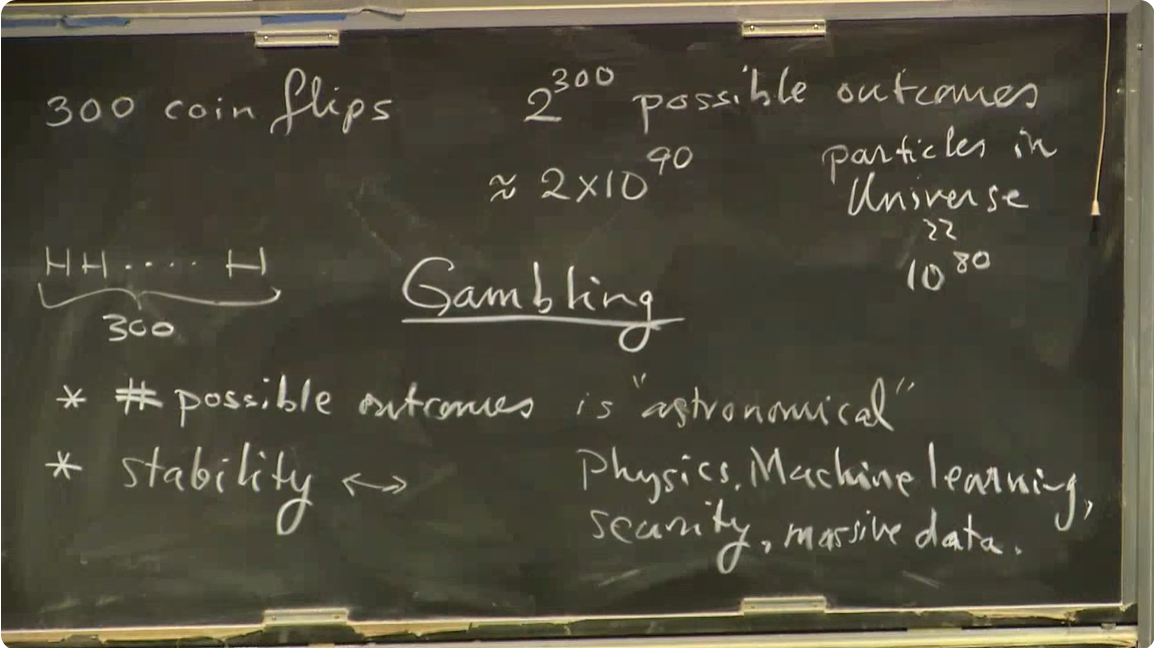 300 coin flips
2^300 possible outcomes
≈ 2×10^90
particles in
Universe
≈
10^80
HH .... H
300
Gambling
* # possible outcomes is "astronomical"
* stability ↔ Physics, Machine learning,
security, massive data.